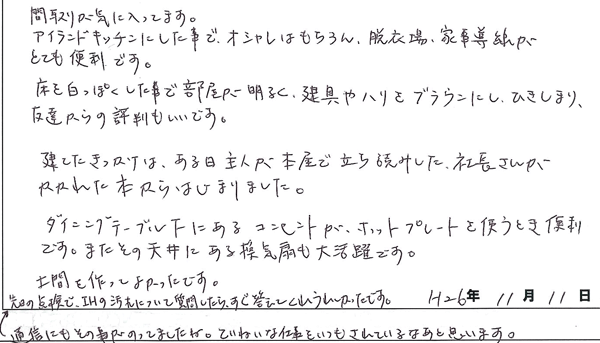 間取りが気に入ってます。
アイランドキッチンにした事で、オシャレはもちろん、脱衣場、家事導線が
とても便利です。
床を白っぽくした事で部屋が明るく、建具やハリをブラウンにし、ひきしまり、
友達からの評判もいいです。
建てたきっかけは、ある日主人が本屋で立ち読みした、社長さんが
かかれた本からはじまりました。
ダイニングテーブル下にあるコンセントが、ホットプレートを使うとき便利
です。またその天井にある換気扇も大活躍です。
土間を作ってよかったです。
先日の点検で、IHの汚れについて質問したら、すぐ答えてくれうれしかったです。 H26年 11月 11日
通信にもその事がのってましたね。ていねいな仕事をいつもされているなあと思います。